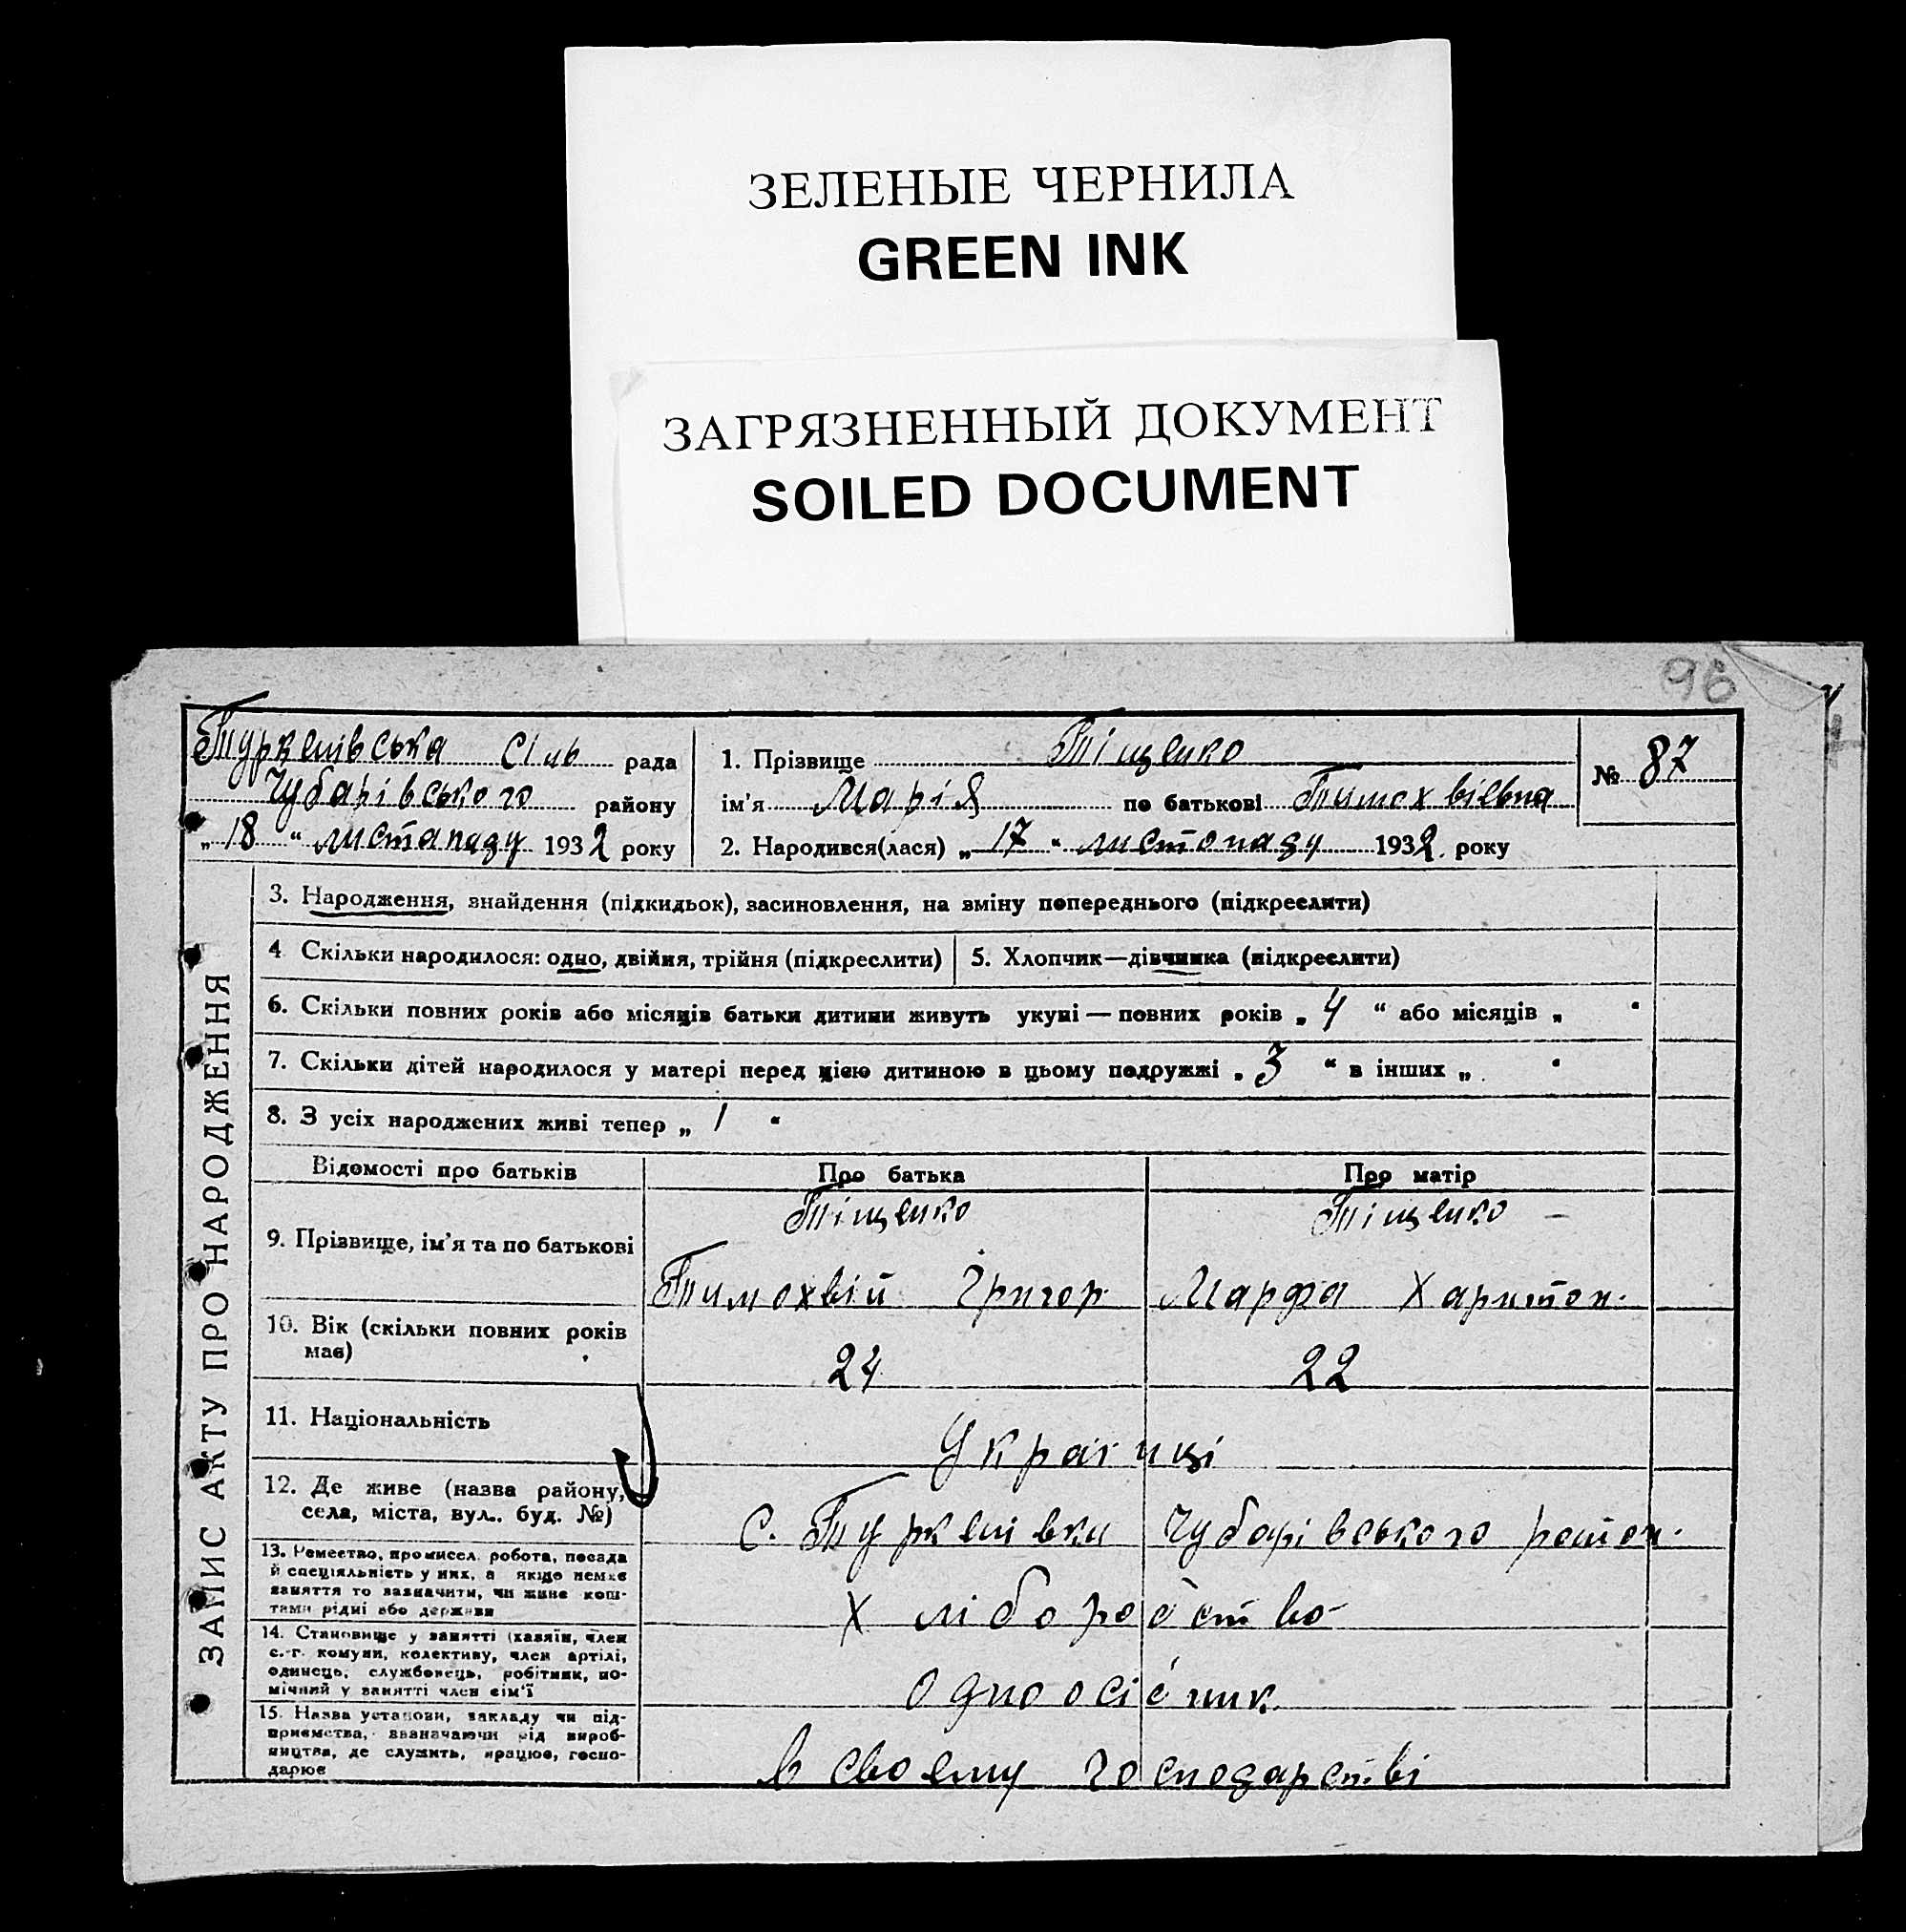 ЗЕЛЕНЫЕ ЧЕРНИЛА
GREEN INK
ЗАГРЯЗНЕННЫЙ ДОКУМЕНТ
SOILED DOCUMENT
96
Туркенівська сіль рада
Чубарівського району
„18“ листападу 1932 року
1. Прізвище Тіщенко
ім’я Марія по батькові Тимохвієвна
2. Народився(лася) „17“ листопаду 1932 року
№ 87
ЗАПИС АКТУ ПРО НАРОДЖЕННЯ
3. Народження, знайдення (підкидьок), засиновлення, на зміну попереднього (підкреслити)
4 Скільки народилося: одно, двійня, трійня (підкреслити)
5. Хлопчик—дівчинка (підкреслити)
6. Скільки повних років або місяців батьки дитини живуть укупі — повних років „4“ або місяців „ “
7. Скільки дітей народилося у матері перед цією дитиною в цьому подружжі „3“ в інших „ “
8. З усіх народжених живі тепер „1“
Відомості про батьків Про батька Про матір
9. Прізвище, ім’я та по батькові
Тіщенко Тіщенко –
Тимохвій Григор. Марфа Харитон.
10. Вік (скільки повних років
має)
24 22
11. Національність
Українці
12. Де живе (назва району,
села, міста, вул.. буд. №)
с. Туркенівки Чубарівського район.
13. Ремество, промисел, робота, посада
й спеціяльність у них, а якщо немає
заняття то зазначити, чи живе кош-
тами рідні або держави
Хліборобство
14. Становище у занятті (хазяїн, член
с.-г. комуни, колективу, член артілі,
одинець, службовець, робітник, по-
мічний у занятті член сім’ї
одноосібник
15. Назва установи, закладу чи під-
приємства, зазначаючи рід вироб-
ництва, де служить, працює, госпо-
дарює
в своєму господарстві